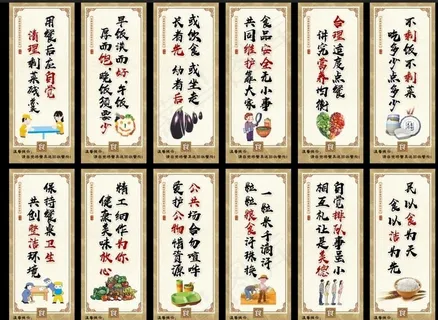 用餐后应自觉
清理剩菜残羹
温馨提示:
早饭淡而好,午饭
厚而饱,晚饭须要少
温馨提示:
或饮食 或坐走
长者先 幼者后
温馨提示:
食品安全无小事
共同维护靠大家
温馨提示:
合理适度点餐
讲究营养均衡
温馨提示:
不剩饭不剩菜
吃多少点多少
温馨提示:
保持餐桌卫生
共创整洁环境
温馨提示:
精工细作为你
健康美味放心
温馨提示:
公共场合勿喧哗
爱护公物惜资源
温馨提示:
一粒米千滴汗
粒粒粮食汗珠换
温馨提示:
自觉排队事虽小
相互礼让是美德
温馨提示:
民以食为天
食以洁为先
温馨提示: